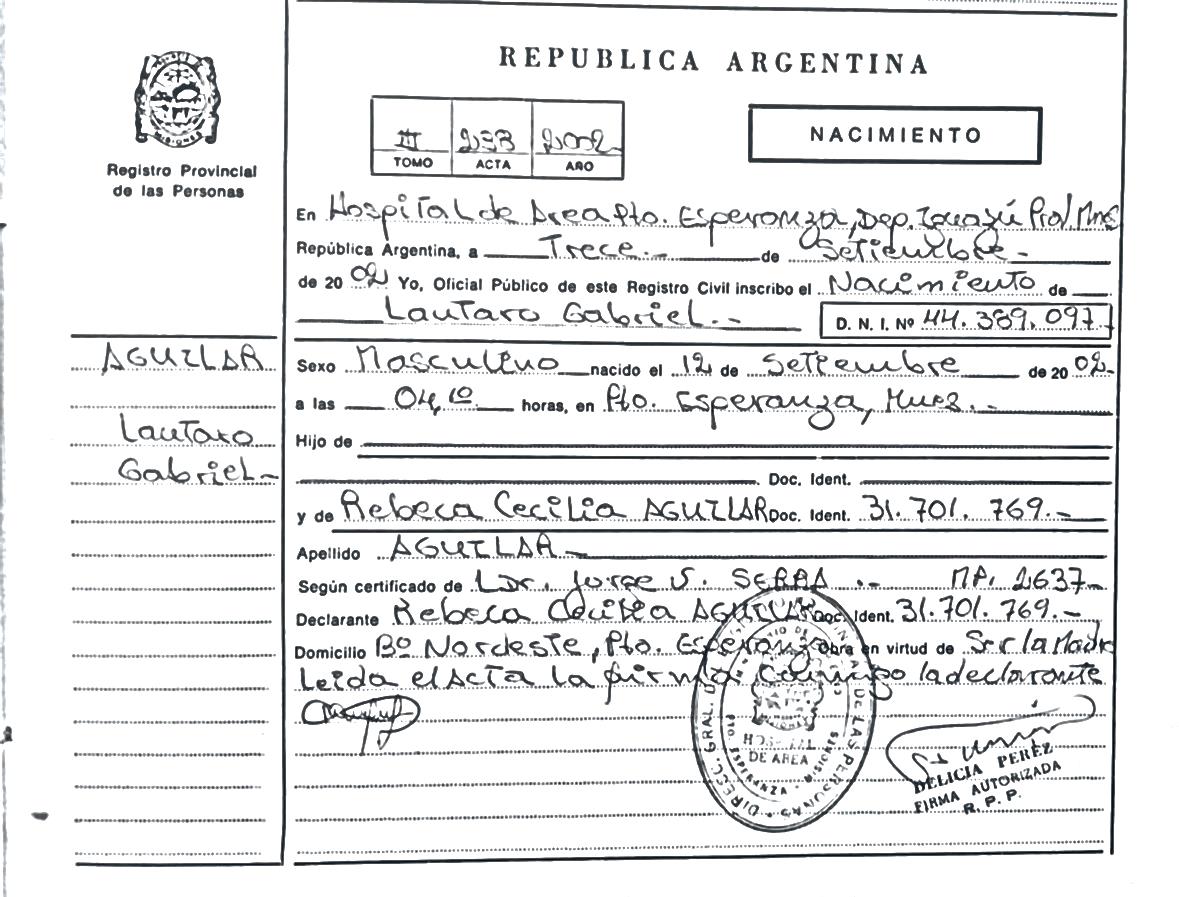 REPUBLICA ARGENTINA
MISIONES
Registro Provincial
de las Personas
III 233 2002
TOMO ACTA AÑO
NACIMIENTO
En Hospital de Area Pto. Esperanza, Dep. Iguazú Prov. Mnes
República Argentina, a Trece.- de Setiembre -
de 2002 Yo, Oficial Público de este Registro Civil inscribo el Nacimiento de
Lautaro Gabriel.- D. N. I. Nº 44.389.097
AGUILAR
Lautaro
Gabriel-
Sexo Masculino nacido el 12 de Setiembre de 2002-
a las 04,10 horas, en Pto. Esperanza, Mnes.-
Hijo de
Doc. Ident.
y de Rebeca Cecilia AGUILAR Doc. Ident. 31.701.769.-
Apellido AGUILAR-
Según certificado de Dr. Jorge S. SERRA .- MP. 2637-
Declarante Rebeca Cecilia AGUILAR Doc. Ident. 31.701.769.-
Domicilio Bº Nordeste, Pto. Esperanza Obra en virtud de Ser la Madre
Leida el Acta la firma conmigo la declarante
DIRECC. GRAL. DE LAS PERSONAS
HOSPITAL
DE AREA
PTO. ESPERANZA - MISIONES
DELICIA PEREZ
FIRMA AUTORIZADA
R. P. P.